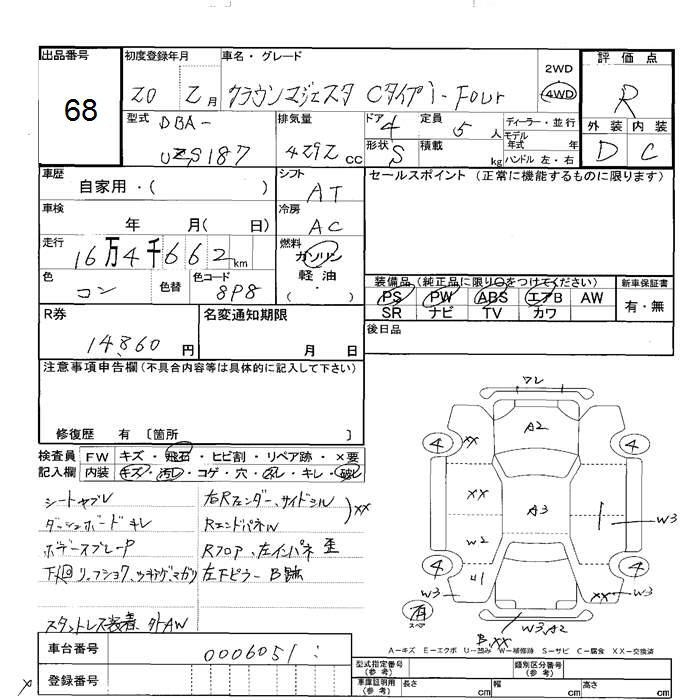 出品番号
68
初度登録年月
20 2月
車名・グレード
クラウンマジェスタ Cタイプ i-Four
2WD
4WD
評価点
R
外装 内装
D C
型式 DBA-
UZS187
排気量
4292 cc
ドア 4
形状 S
定員 5 人
積載 kg
ディーラー・並行
モデル年式 年
ハンドル 左・右
車歴
自家用・( )
シフト
AT
車検
年 月( 日)
冷房
AC
走行
16万4千662km
燃料
ガソリン
軽油
・( )
色
コン
色替
色コード
8P8
セールスポイント (正常に機能するものに限ります)
装備品(純正品に限り○をつけてください)
PS PW ABS エアB AW
SR ナビ TV カワ
新車保証書
有・無
後日品
R券
14,860 円
名変通知期限
月 日
注意事項申告欄(不具合内容等は具体的に記入して下さい)
修復歴 有 〔箇所 〕
検査員 FW キズ・飛石・ヒビ割・リペア跡・×要
記入欄 内装 キズ・汚レ・コゲ・穴・スレ・キレ・破レ
シートヤブレ
ダッシュボードキレ
ボデースプレーP
スタットレス装着、外AW
右Rフェンダー、サイドシル
Rエンドパネル
XX
Rフロア、左インパネ 歪
左下ピラーB
ワレ
A2
4
XX
4
XX
A3
W3
W2
4
U1
4
W3
XX
W3
有
スペア
W3,A2
B,XX
A-キズ E-エクボ U-凹み W-補修跡 S-サビ C-腐食 XX-交換済
車台番号
0006051
登録番号
型式指定番号
(参考)
類別区分番号
(参考)
車庫証明用
(参考)
長さ cm
幅 cm
高さ cm